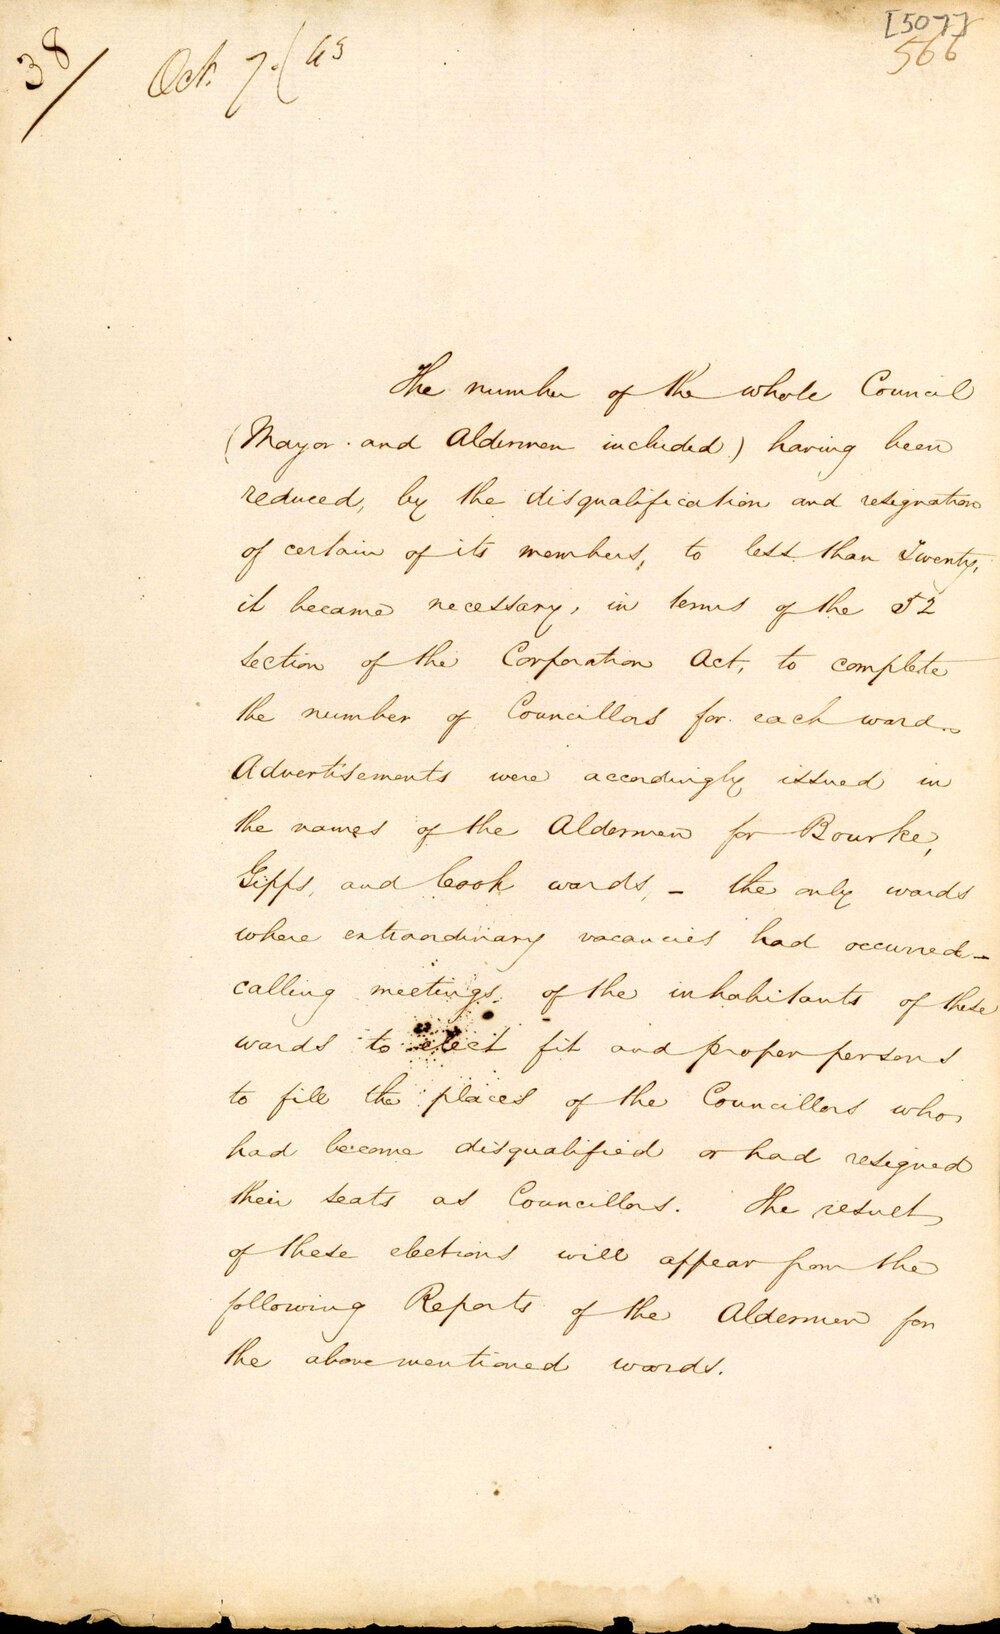 [507]
566
38/
Oct. 7./43
The number of the whole Council
(Mayor and Aldermen included) having been
reduced, by the disqualification and resignation
of certain of its members, to less than Twenty,
it became necessary, in terms of the 52
section of the Corporation Act, to complete
the number of Councillors for each ward.
Advertisements were accordingly issued in
the names of the Aldermen for Bourke,
Gipps, and Cook wards, - the only wards
where extraordinary vacancies had occurred -
calling meetings of the inhabitants of these
wards to elect fit and proper persons
to fill the places of the Councillors who
had become disqualified or had resigned
their seats as Councillors. The result
of these elections will appear from the
following Reports of the Aldermen for
the above mentioned wards.